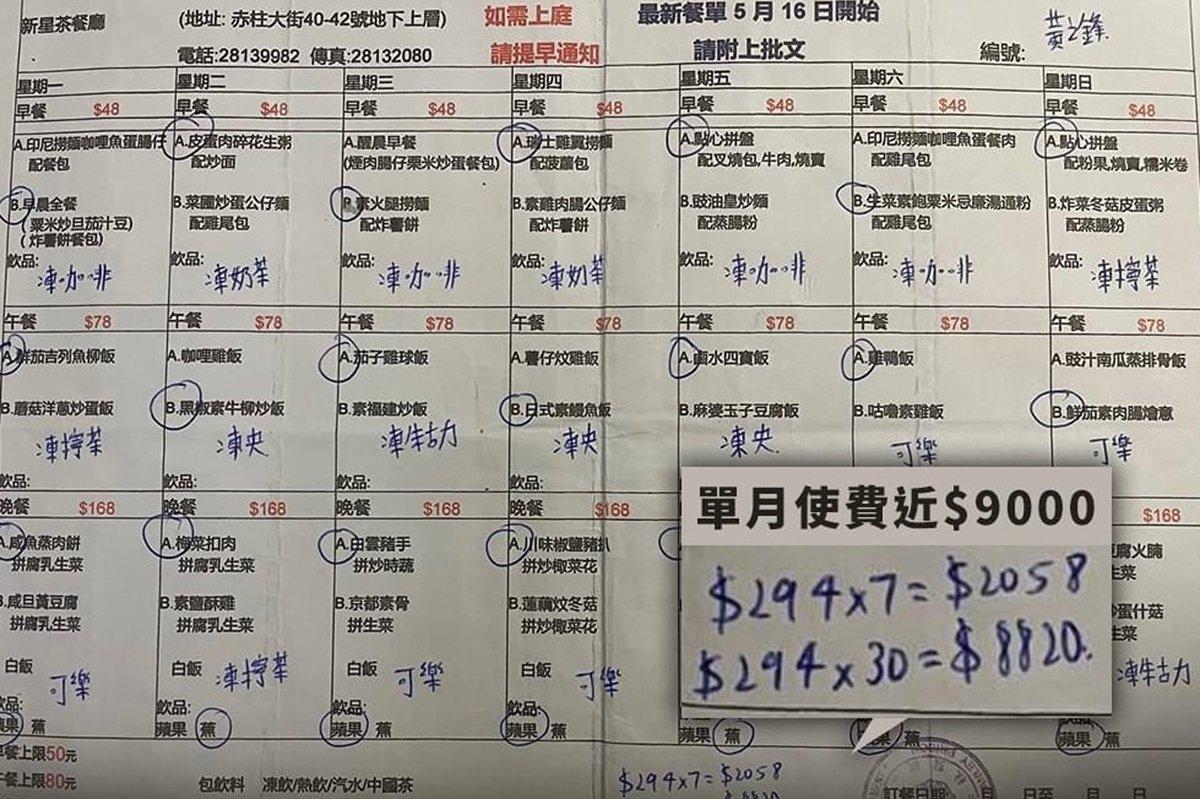 新星茶餐廳 (地址: 赤柱大街40-42號地下上層) 如需上庭 最新餐單 5 月 16 日開始 黃之鋒
電話:28139982 傳真:28132080 請提早通知 請附上批文 編號:
星期一 星期二 星期三 星期四 星期五 星期六 星期日
早餐 $48 早餐 $48 早餐 $48 早餐 $48 早餐 $48 早餐 $48 早餐 $48
A.印尼撈麵咖哩魚蛋腸仔 A.皮蛋肉碎花生粥 A.醒晨早餐 A.瑞士雞翼撈麵 A.點心拼盤 A.印尼撈麵咖哩魚蛋餐肉 A.點心拼盤
配餐包 配炒面 (煙肉腸仔栗米炒蛋餐包) 配菠蘿包 配叉燒包,牛肉,燒賣 配雞尾包 配粉果,燒賣,糯米卷
B.早晨全餐 B.菜圃炒蛋公仔麵 B.素火腿撈麵 B.素雞肉腸公仔麵 B.豉油皇炒麵 B.生菜素飽粟米忌廉湯通粉 B.炸菜冬菇皮蛋粥
(粟米炒旦茄汁豆) 配雞尾包 配炸薯餅 配炸薯餅 配蒸腸粉 配雞尾包 配蒸腸粉
(炸薯餅餐包)
飲品: 飲品: 飲品: 飲品: 飲品: 飲品: 飲品:
凍咖啡 凍奶茶 凍咖啡 凍奶茶 凍咖啡 凍咖啡 凍檸茶
午餐 $78 午餐 $78 午餐 $78 午餐 $78 午餐 $78 午餐 $78 午餐 $78
A.鮮茄吉列魚柳飯 A.咖哩雞飯 A.茄子雞球飯 A.薯仔炆雞飯 A.鹵水四寶飯 A.雞鴨飯 A.豉汁南瓜蒸排骨飯
B.蘑菇洋蔥炒蛋飯 B.黑椒素牛柳炒飯 B.素福建炒飯 B.日式素鰻魚飯 B.麻婆玉子豆腐飯 B.咕嚕素雞飯 B.鮮茄素肉腸燴意
凍檸茶 凍央 凍朱古力 凍央 凍央 可樂 可樂
飲品: 飲品: 飲品: 飲品:
單月使費近$9000
晚餐 $168 晚餐 $168 晚餐 $168 晚餐 $168 $168
A.咸魚蒸肉餅 A.梅菜扣肉 A.白雲豬手 A.川味椒鹽豬扒 腐火腩
拼腐乳生菜 拼腐乳生菜 拼炒時蔬 拼炒椰菜花 生菜
$294x7=$2058
B.咸旦黃豆腐 B.素鹽酥雞 B.京都素骨 B.蓮藕炆冬菇 炒蛋什菇
拼腐乳生菜 拼腐乳生菜 拼生菜 拼炒椰菜花 生菜
$294x30=$8820.
白飯 白飯 白飯 白飯
可樂 凍檸茶 可樂 可樂 凍朱古力
飲品: 飲品: 飲品: 飲品: 飲品:
蘋果 蕉 蘋果 蕉 蘋果 蕉 蘋果 蕉 蘋果 蕉 蘋果 蕉 蘋果 蕉
早餐上限50元
午餐上限80元 包飲料 凍飲/熱飲/汽水/中國茶 $294x7=$2058
8820 訂餐日期: 月 日至 月 日